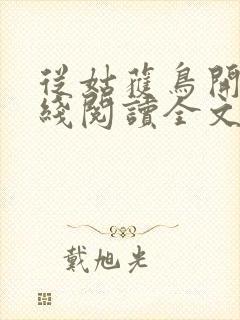 從姑獲鳥開
綫閱讀全文
戴旭光